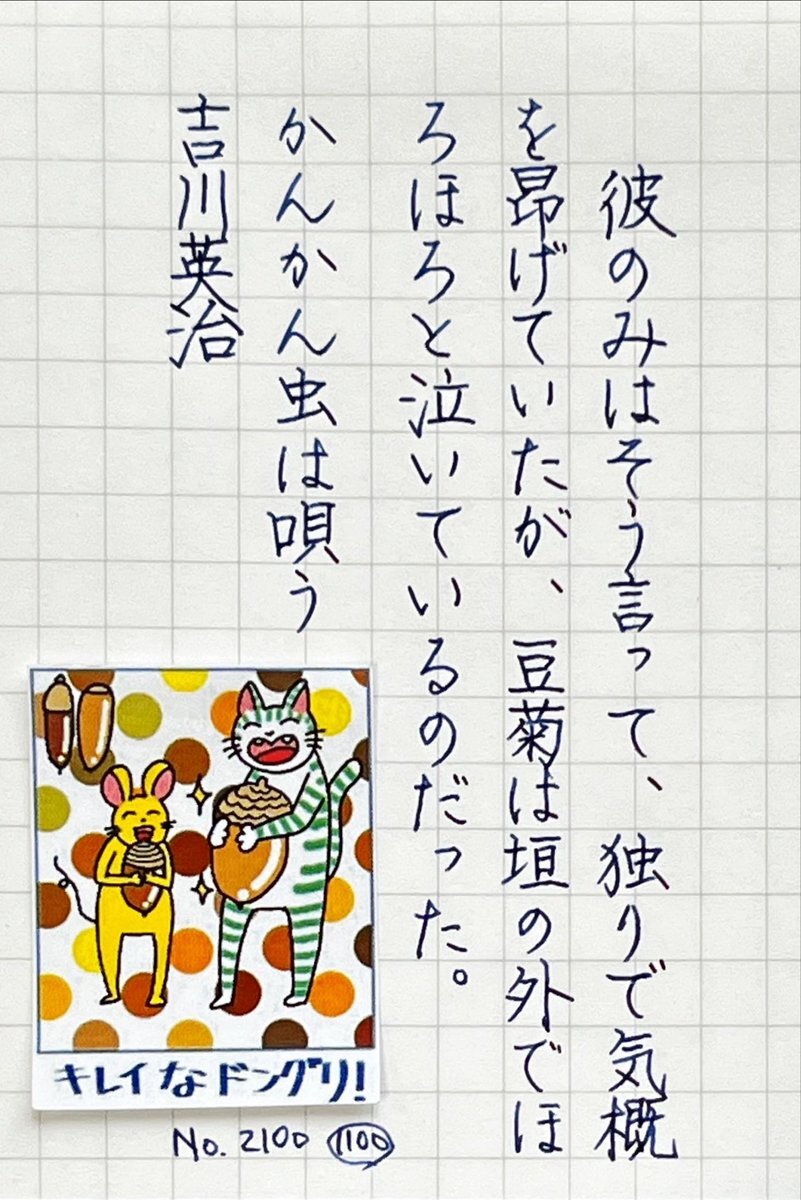 彼のみはそう言って、独りで気概
を昂げていたが、豆菊は垣の外でほ
ろほろと泣いているのだった。
かんかん虫は唄う
吉川英治
キレイなドングリ!
No. 2100 1100